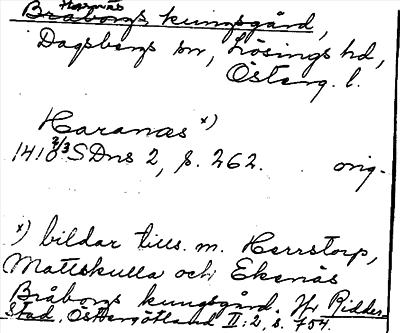 Herrnäs
Bråborgs kungsgård,
Dagsbergs sn, Lösings hd,
Österg. l.
Haranæs x)
1410 2/3 SDns 2, s. 262. orig.
x) bildar tills. m. Herrstorp,
Mattskulla och Ekenäs
Bråborgs kungsgård. Jfr Ridder-
stad, Östergötland II:2, s. 754.